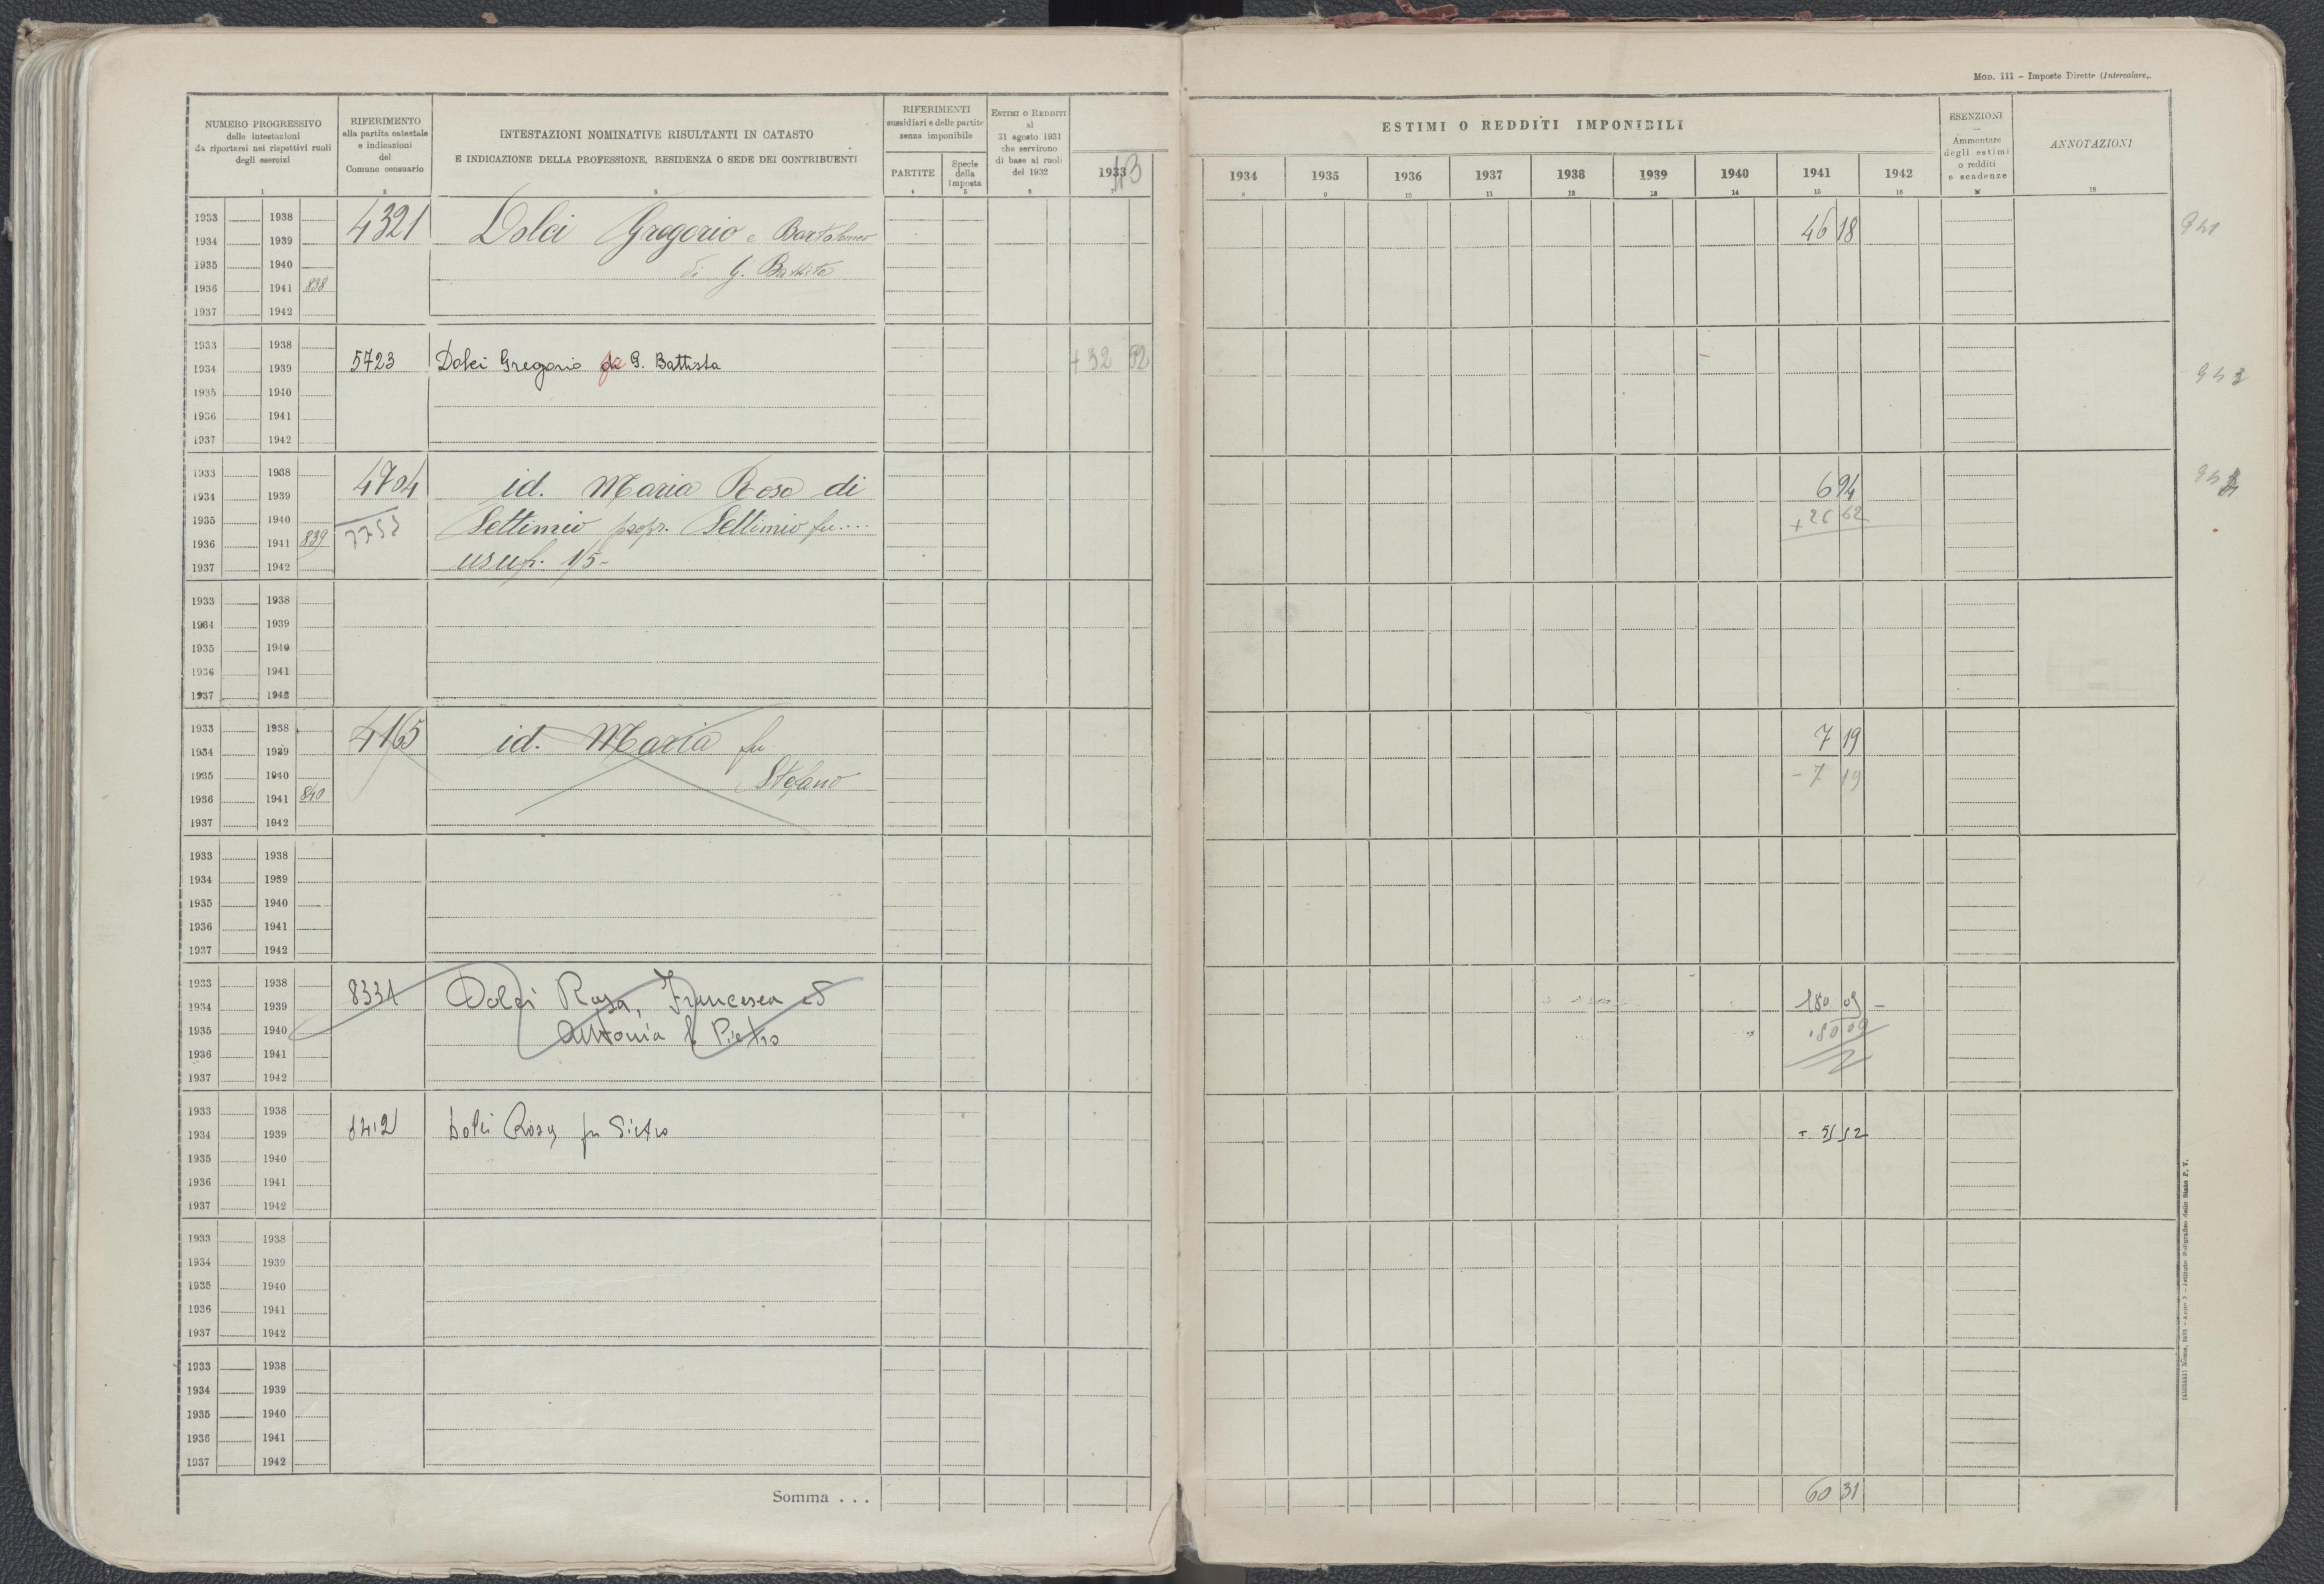 Mod. 111 – Imposte Dirette (Intercalare,.
NUMERO PROGRESSIVO
delle intestazioni
da riportarsi nei rispettivi ruoli
degli esercizi
1
RIFERIMENTO
alla partita catastale
e indicazioni
del
Comune censuario
2
INTESTAZIONI NOMINATIVE RISULTANTI IN CATASTO
E INDICAZIONE DELLA PROFESSIONE, RESIDENZA O SEDE DEI CONTRIBUENTI
3
RIFERIMENTI
sussidiari e delle partite
senza imponibile
PARTITE
4
Specie
della
imposta
5
ESTIMI O REDDITI
al
31 agosto 1931
che servirono
di base ai ruoli
del 1932
6
1933 43
7
ESTIMI O REDDITI IMPONIBILI
1934 1935 1936 1937 1938 1939 1940 1941 1942
ESENZIONI
—
Ammontare
degli estimi
o redditi
e scadenze
ANNOTAZIONI
18
1933 1938 4321 Dolci Gregorio e Bartolomeo 46 18 941
1934 1939
1935 1940 di G. Battista
1936 1941 838
1937 1942
1933 1938
1934 1939 5723 Dolci Gregorio fu G. Battista + 32 52
1935 1940
1936 1941
1937 1942
1933 1938 4704 id. Maria Rosa di 6 94
1934 1939
1935 1940 7753 Settimio propr. Settimio fu.... + 26 62
1936 1941 839
1937 1942 usuf. 1/5-
1933 1938
1934 1939
1935 1940
1936 1941
1937 1942
1933 1938 4165 id. Maria fu 7 19
1934 1939
1935 1940 Stefano - 7 19
1936 1941 840
1937 1942
1933 1938
1934 1939
1935 1940
1936 1941
1937 1942
1933 1938 8331 Dolci Rosa, Francesca ed 180 09 –
1934 1939
1935 1940 Antonia fu Pietro 180 09
1936 1941
1937 1942
1933 1938
1934 1939 Dolci Rosa fu Pietro
1935 1940
1936 1941
1937 1942
1933 1938
1934 1939
1935 1940
1936 1941
1937 1942
1933 1938
1934 1939
1935 1940
1936 1941
1937 1942
Somma . . . 60 31